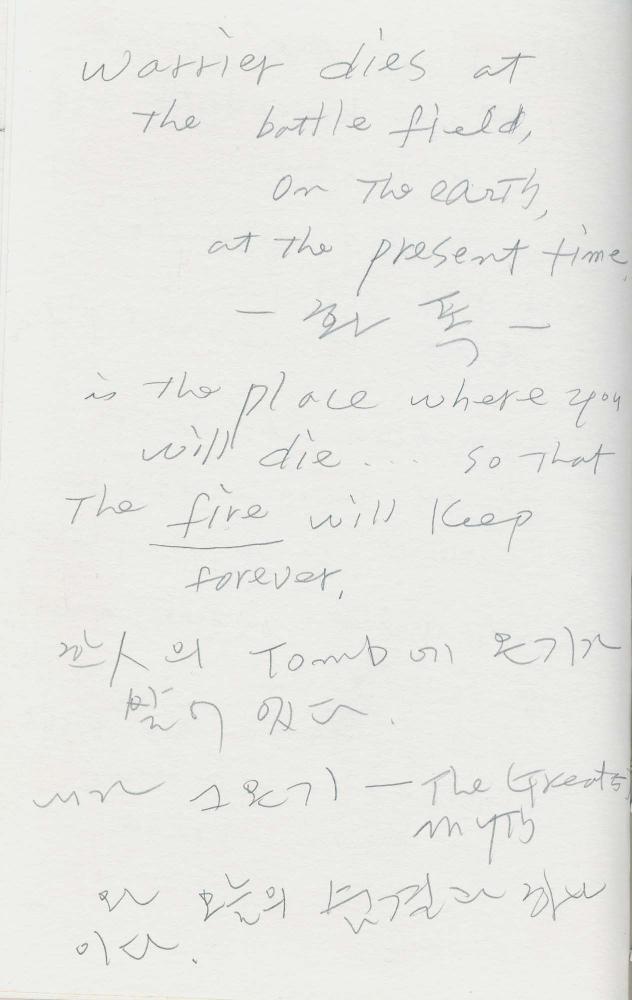 warrier dies at
the battle field,
on the earth,
at the present time,
- 화폭 -
is the place where you
will die.... so that
The fire will keep
forever,
의 Tomb에 온기가
있다.
그 온기 — The Great
myth
와 오늘의 숨결과 하나
이다.